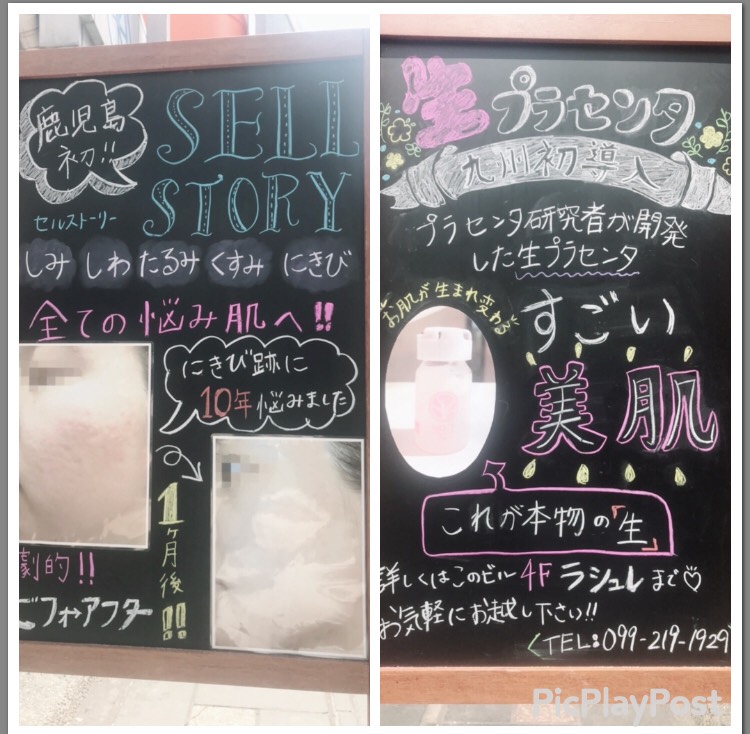 鹿児島
初!!
SELL
STORY
セルストーリー
しみ しわ たるみ くすみ にきび
全ての悩み肌へ!!
にきび跡に
10年悩みました
1ヶ月後!!
劇的!!
ビフォーアフター
生プラセンタ
九州初導入
プラセンタ研究者が開発
した生プラセンタ
お肌が生まれ変わる
すごい
美肌
これが本物の「生」
詳しくはこのビル4Fラシュレまで♡
お気軽にお越し下さい!!
TEL:099-219-1929
PicPlayPost